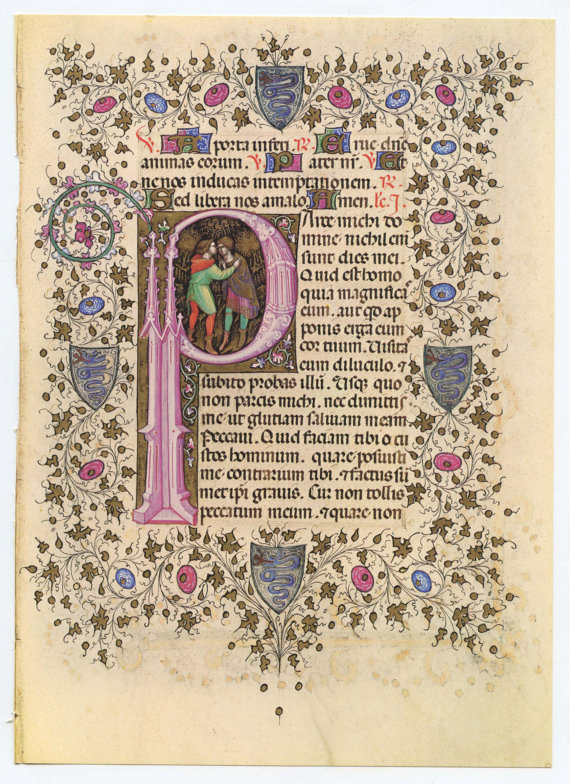 V. A porta inferi. R. Erue dñe
animas eorum. V. Pater nr̄. V. Et
ne nos inducas in temptationem. R.
Sed libera nos a malo. Amen. lc̄. I.
Parce michi do
mine nichil eni
sunt dies mei.
Quid est homo
quia magnificas
eum. aut qd ap
ponis erga eum
cor tuum. Visita
eum diluculo. ⁊
subito probas illū. Vsqꝫ quo
non parcis michi. nec dimittis
me ut glutiam saliuam meam.
Peccaui. Quid faciam tibi o cu
stos hominum. quare posuisti
me contrarium tibi. ⁊ factus sū
metipi grauis. Cur non tollis
peccatum meum. ⁊ quare non